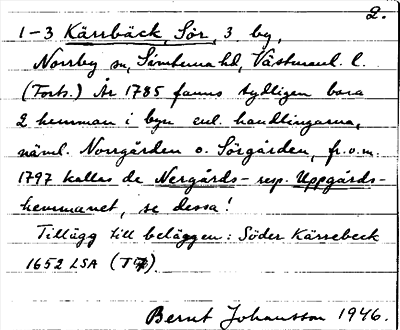 2.
1-3 Kärrbäck, Sör, 3 by,
Norrby sn, Simtuna hd, Västmanl. l.
(Forts.) År 1785 fanns tydligen bara
2 hemman i byn enl. handlingarna,
näml. Norrgården o. Sörgården, fr.o.m.
1797 kallas de Nergårds- resp. Uppgårds-
hemmanet, se dessa!
Tillägg till beläggen: Söder Kärrebeck
1652 LSA (T7).
Bernt Johansson 1946.